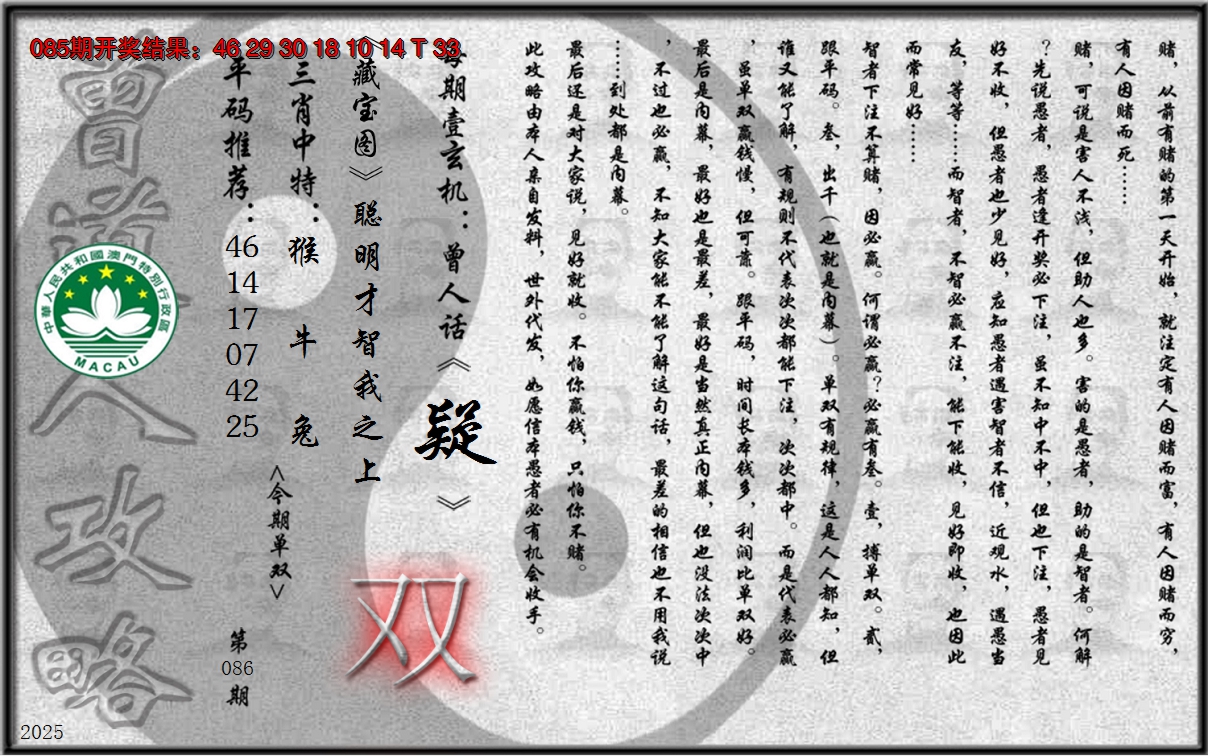 085期开奖结果：46 29 30 18 10 14 T 33
赌，从前有赌的第一天开始，就注定有人因赌而富，有人因赌而穷，
有人因赌而死……
赌，可说是害人不浅，但助人也多。害的是愚者，助的是智者。何解
？先说愚者，愚者逢开奖必下注，虽不知中不中，但也下注，愚者见
好不收，但愚者也少见好，应知愚者遇害智者不信，近观水，遇愚当
友，等等……而智者，不智必赢不注，能下能收，见好即收，也因此
而常见好……
智者下注不算赌，因必赢。何谓必赢？必赢有叁。壹，搏单双。贰，
跟平码。叁，出千（也就是内幕）。单双有规律，这是人人都知，但
谁又能了解，有规则不代表次次都能下注，次次都中。而是代表必赢
，虽单双赢钱慢，但可靠。跟平码，时间长本钱多，利润比单双好。
最后是内幕，最好也是最差，最好是当然真正内幕，但也没法次次中
，不过也必赢，不知大家能不能了解这句话，最差的相信也不用我说
……到处都是内幕。
最后还是对大家说，见好就收。不怕你赢钱，只怕你不赌。
此攻略由本人亲自发料，世外代发，如愿信本愚者必有机会收手。
每期壹玄机：曾人话《疑》
《藏宝图》聪明才智我之上
双
三肖中特：猴 牛 兔
<今期单双>
平码推荐：
46
14
17
07
42
25
第
086
期
曾道人攻略
中華人民共和國澳門特別行政區
MACAU
2025